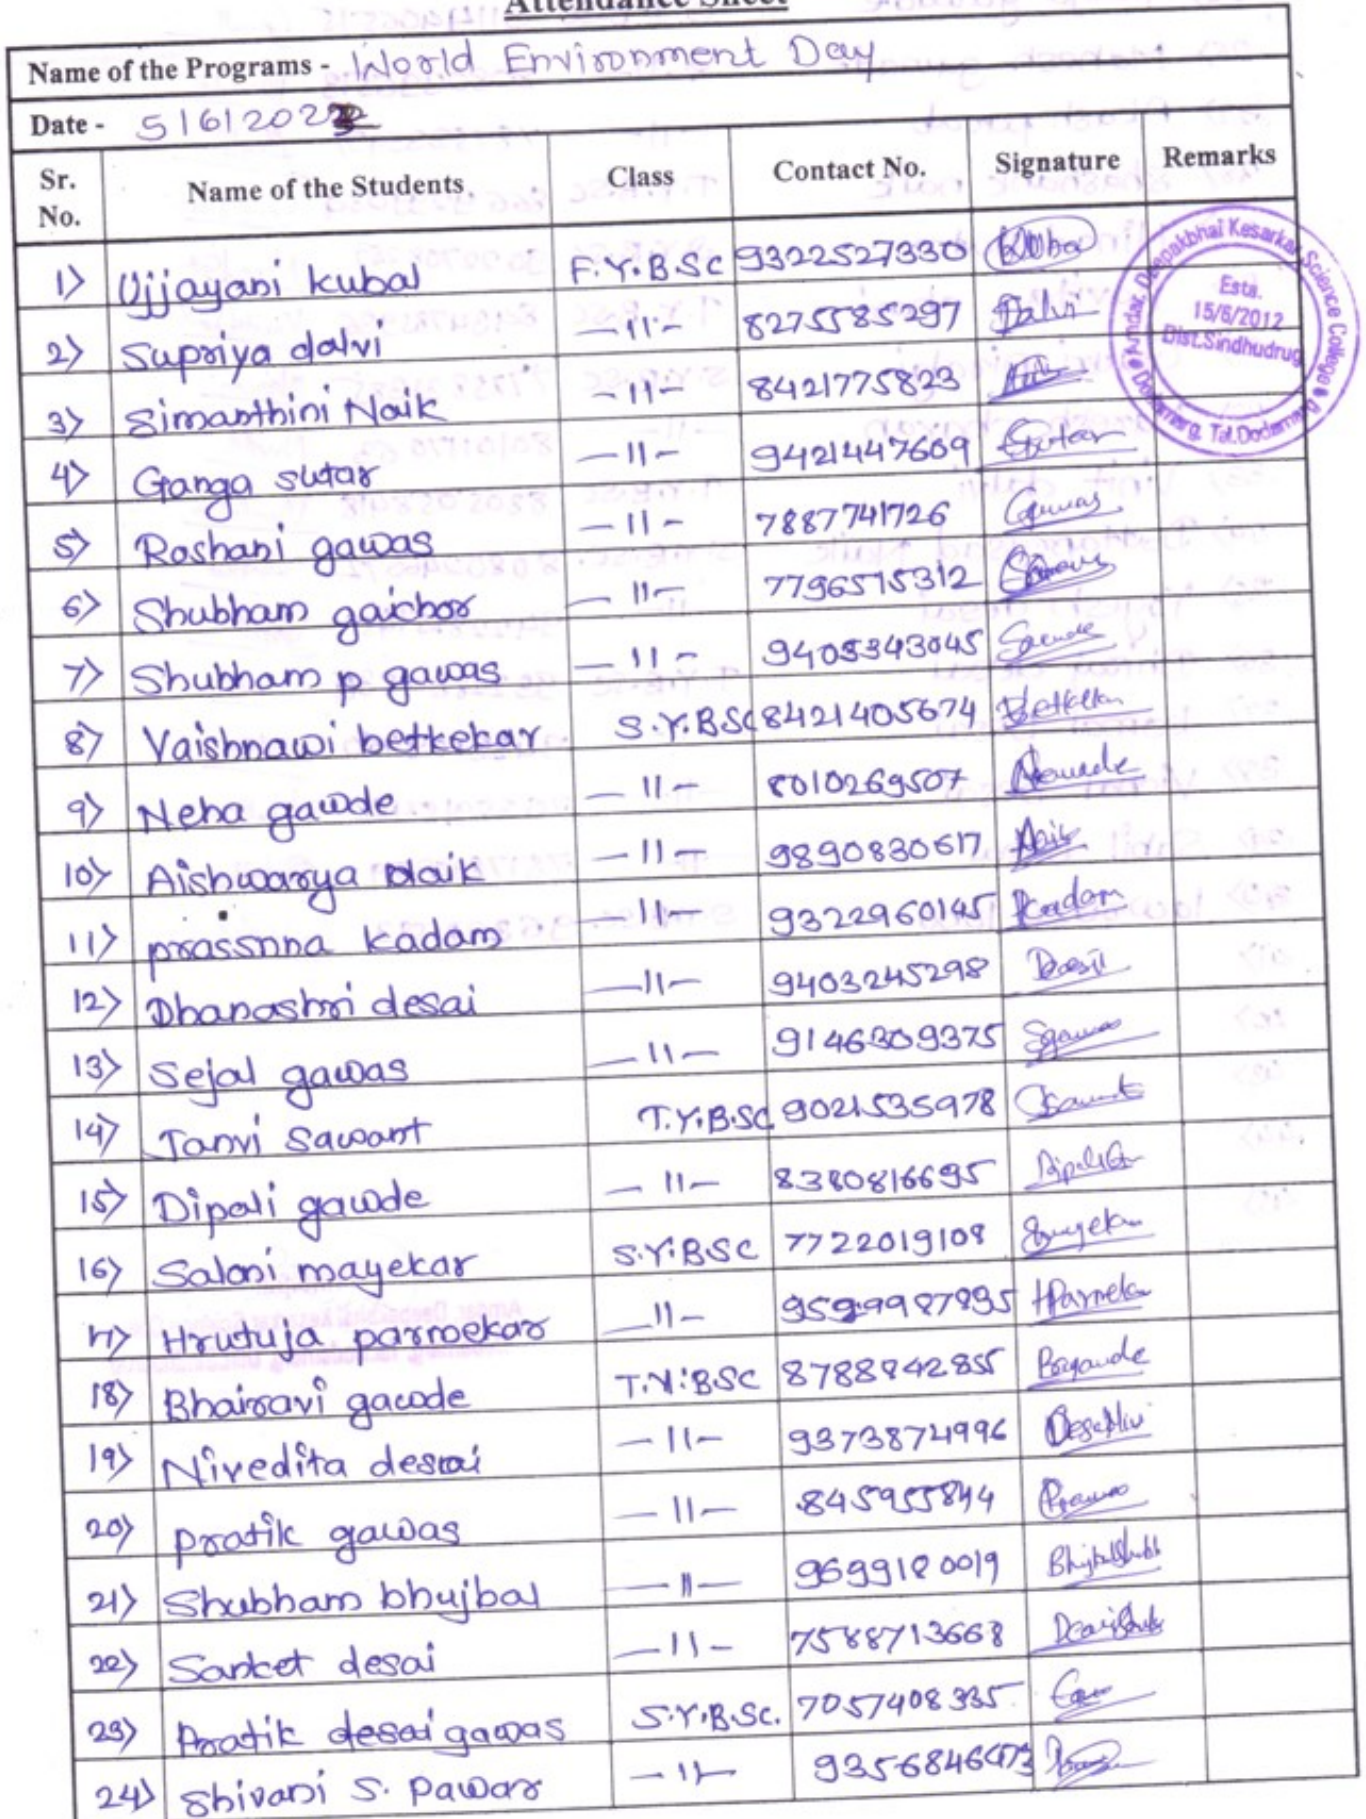 Attendance Sheet
Name of the Programs - World Environment Day
Date - 5/6/2023
Sr. No. Name of the Students Class Contact No. Signature Remarks
1) Ujjayani kubal F.Y.B.Sc 9322527330
2) Supriya dalvi —11— 8275585297 Dalvi
3) Simanthini Naik —11— 8421775823
4) Ganga sutar —11— 9421447609 Gutar
5) Roshani gawas —11— 7887741726 Gawas
6) Shubham gaichor —11— 7796515312
7) Shubham p gawas —11— 9405343045
8) Vaishnawi betkekar S.Y.BSc 8421405674
9) Neha gawde —11— 8010269507
10) Aishwarya Naik —11— 9890830617 Naik
11) prassnna kadam —11— 9322960145 Kadam
12) Dhanashri desai —11— 9403245298
13) Sejal gawas —11— 9146309375 Sgawas
14) Tanvi Sawant T.Y.B.Sc 9021535978
15) Dipali gawde —11— 8380816695
16) Saloni mayekar S.Y.B.Sc 7722019108
17) Hrutuja parmekar —11— HParmekar
18) Bhairavi gawde T.Y.B.Sc 8788942855 Brgawde
19) Nivedita desai —11— 9373874996
20) pratik gawas —11— 845955844
21) Shubham bhujbal —11— 9699180019
22) Sanket desai —11— 7588713668
23) Pratik desai gawas S.Y.B.Sc. 7057408335
24) Shivani S. Pawar —11—
Amdar. Deepakbhai Kesarkar Science College
Dodamarg. Tal.Dodamarg
Estd.
15/6/2012
Dist.Sindhudrug